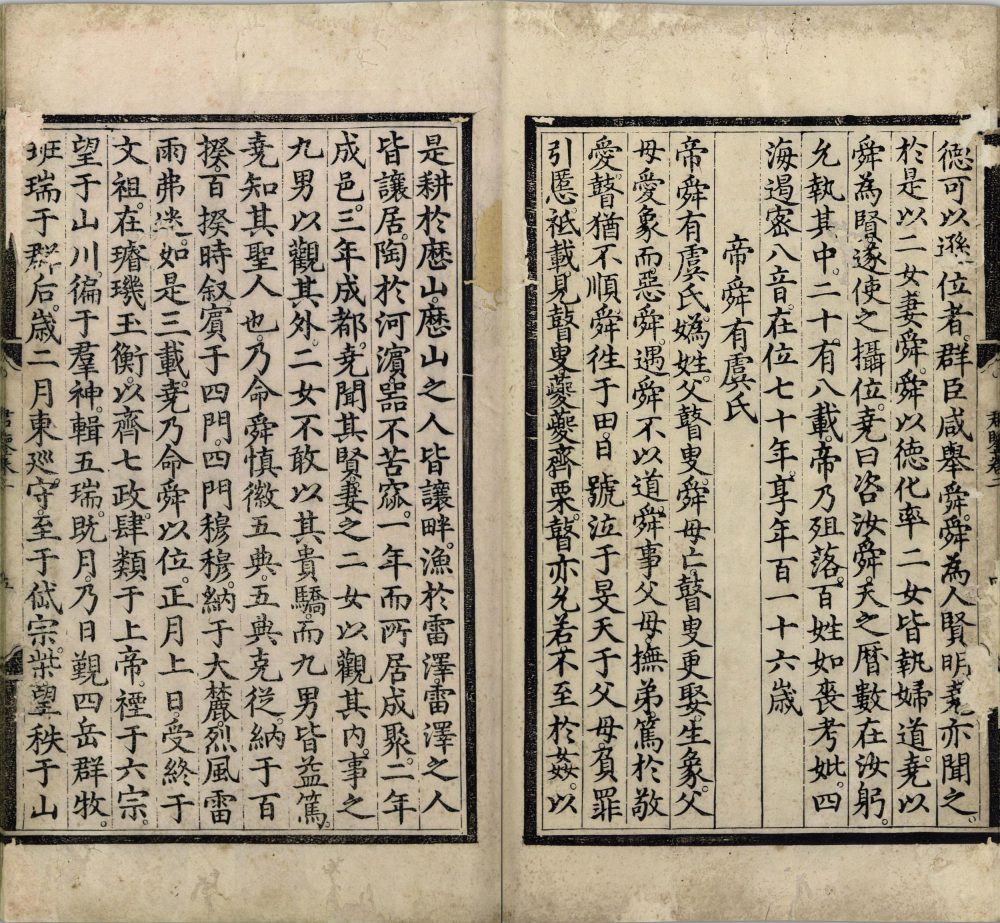 德可以遜位者。群臣咸舉舜。舜為人賢明。堯亦聞之。
於是以二女妻舜。舜以德化率二女皆執婦道。堯以
舜為賢。遂使之攝位。堯曰咨汝舜。天之曆數在汝躬。
允執其中。二十有八載。帝乃殂落。百姓如喪考妣。四
海遏密八音。在位七十年。享年百一十六歲
帝舜有虞氏
帝舜有虞氏。媯姓。父瞽叟。舜母亡。瞽叟更娶。生象。父
母愛象而惡舜。遇舜不以道。舜事父母。撫弟篤於敬
愛。瞽猶不順。舜徃于田。日號泣于旻天于父母。負罪
引慝。祗載見瞽叟。夔夔齊栗。瞽亦允若。不至於姦。以
是耕於歷山。歷山之人皆讓畔。漁於雷澤。雷澤之人
皆讓居。陶於河濱。器不苦窳。一年而所居成聚。二年
成邑。三年成都。堯聞其賢。妻之二女以觀其內。事之
九男以觀其外。二女不敢以其貴驕。而九男皆益篤。
堯知其聖人也。乃命舜慎徽五典。五典克從。納于百
揆。百揆時叙。賓于四門。四門穆穆。納于大麓。烈風雷
雨弗迷。如是三載。堯乃命舜以位。正月上日。受終于
文祖。在璿璣玉衡。以齊七政。肆類于上帝。禋于六宗。
望于山川。徧于羣神。輯五瑞。旣月。乃日覲四岳群牧。
班瑞于群后。歲二月東廵守。至于岱宗。柴望秩于山